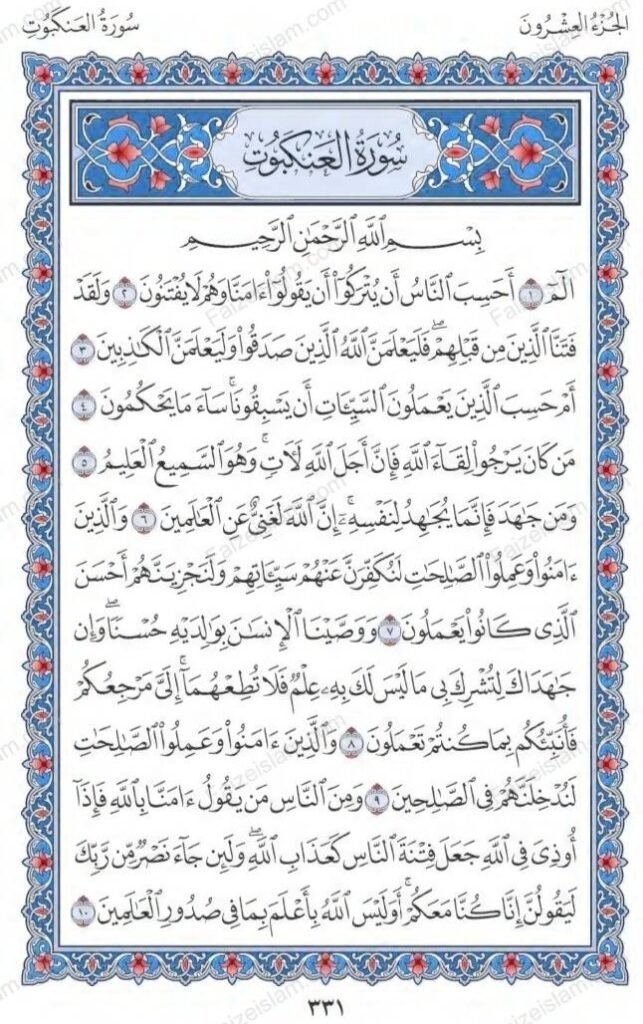 الجُزْءُ العِشْرُونَ
سُورَةُ العَنكَبُوتِ
سُورَةُ العَنكَبُوتِ
بِسْمِ ٱللَّهِ ٱلرَّحْمَٰنِ ٱلرَّحِيمِ
الٓمٓ ١ أَحَسِبَ ٱلنَّاسُ أَن يُتْرَكُوٓا۟ أَن يَقُولُوٓا۟ ءَامَنَّا وَهُمْ لَا يُفْتَنُونَ ٢ وَلَقَدْ
فَتَنَّا ٱلَّذِينَ مِن قَبْلِهِمْ ۖ فَلَيَعْلَمَنَّ ٱللَّهُ ٱلَّذِينَ صَدَقُوا۟ وَلَيَعْلَمَنَّ ٱلْكَٰذِبِينَ ٣
أَمْ حَسِبَ ٱلَّذِينَ يَعْمَلُونَ ٱلسَّيِّـَٔاتِ أَن يَسْبِقُونَا ۚ سَآءَ مَا يَحْكُمُونَ ٤
مَن كَانَ يَرْجُوا۟ لِقَآءَ ٱللَّهِ فَإِنَّ أَجَلَ ٱللَّهِ لَـَٔاتٍ ۚ وَهُوَ ٱلسَّمِيعُ ٱلْعَلِيمُ ٥
وَمَن جَٰهَدَ فَإِنَّمَا يُجَٰهِدُ لِنَفْسِهِۦٓ ۚ إِنَّ ٱللَّهَ لَغَنِىٌّ عَنِ ٱلْعَٰلَمِينَ ٦ وَٱلَّذِينَ
ءَامَنُوا۟ وَعَمِلُوا۟ ٱلصَّٰلِحَٰتِ لَنُكَفِّرَنَّ عَنْهُمْ سَيِّـَٔاتِهِمْ وَلَنَجْزِيَنَّهُمْ أَحْسَنَ
ٱلَّذِى كَانُوا۟ يَعْمَلُونَ ٧ وَوَصَّيْنَا ٱلْإِنسَٰنَ بِوَٰلِدَيْهِ حُسْنًا ۖ وَإِن
جَٰهَدَاكَ لِتُشْرِكَ بِى مَا لَيْسَ لَكَ بِهِۦ عِلْمٌ فَلَا تُطِعْهُمَآ ۚ إِلَىَّ مَرْجِعُكُمْ
فَأُنَبِّئُكُم بِمَا كُنتُمْ تَعْمَلُونَ ٨ وَٱلَّذِينَ ءَامَنُوا۟ وَعَمِلُوا۟ ٱلصَّٰلِحَٰتِ
لَنُدْخِلَنَّهُمْ فِى ٱلصَّٰلِحِينَ ٩ وَمِنَ ٱلنَّاسِ مَن يَقُولُ ءَامَنَّا بِٱللَّهِ فَإِذَآ
أُوذِىَ فِى ٱللَّهِ جَعَلَ فِتْنَةَ ٱلنَّاسِ كَعَذَابِ ٱللَّهِ ۖ وَلَئِن جَآءَ نَصْرٌ مِّن رَّبِّكَ
لَيَقُولُنَّ إِنَّا كُنَّا مَعَكُمْ ۚ أَوَلَيْسَ ٱللَّهُ بِأَعْلَمَ بِمَا فِى صُدُورِ ٱلْعَٰلَمِينَ ١٠
٣٣١
Faizeislam.com